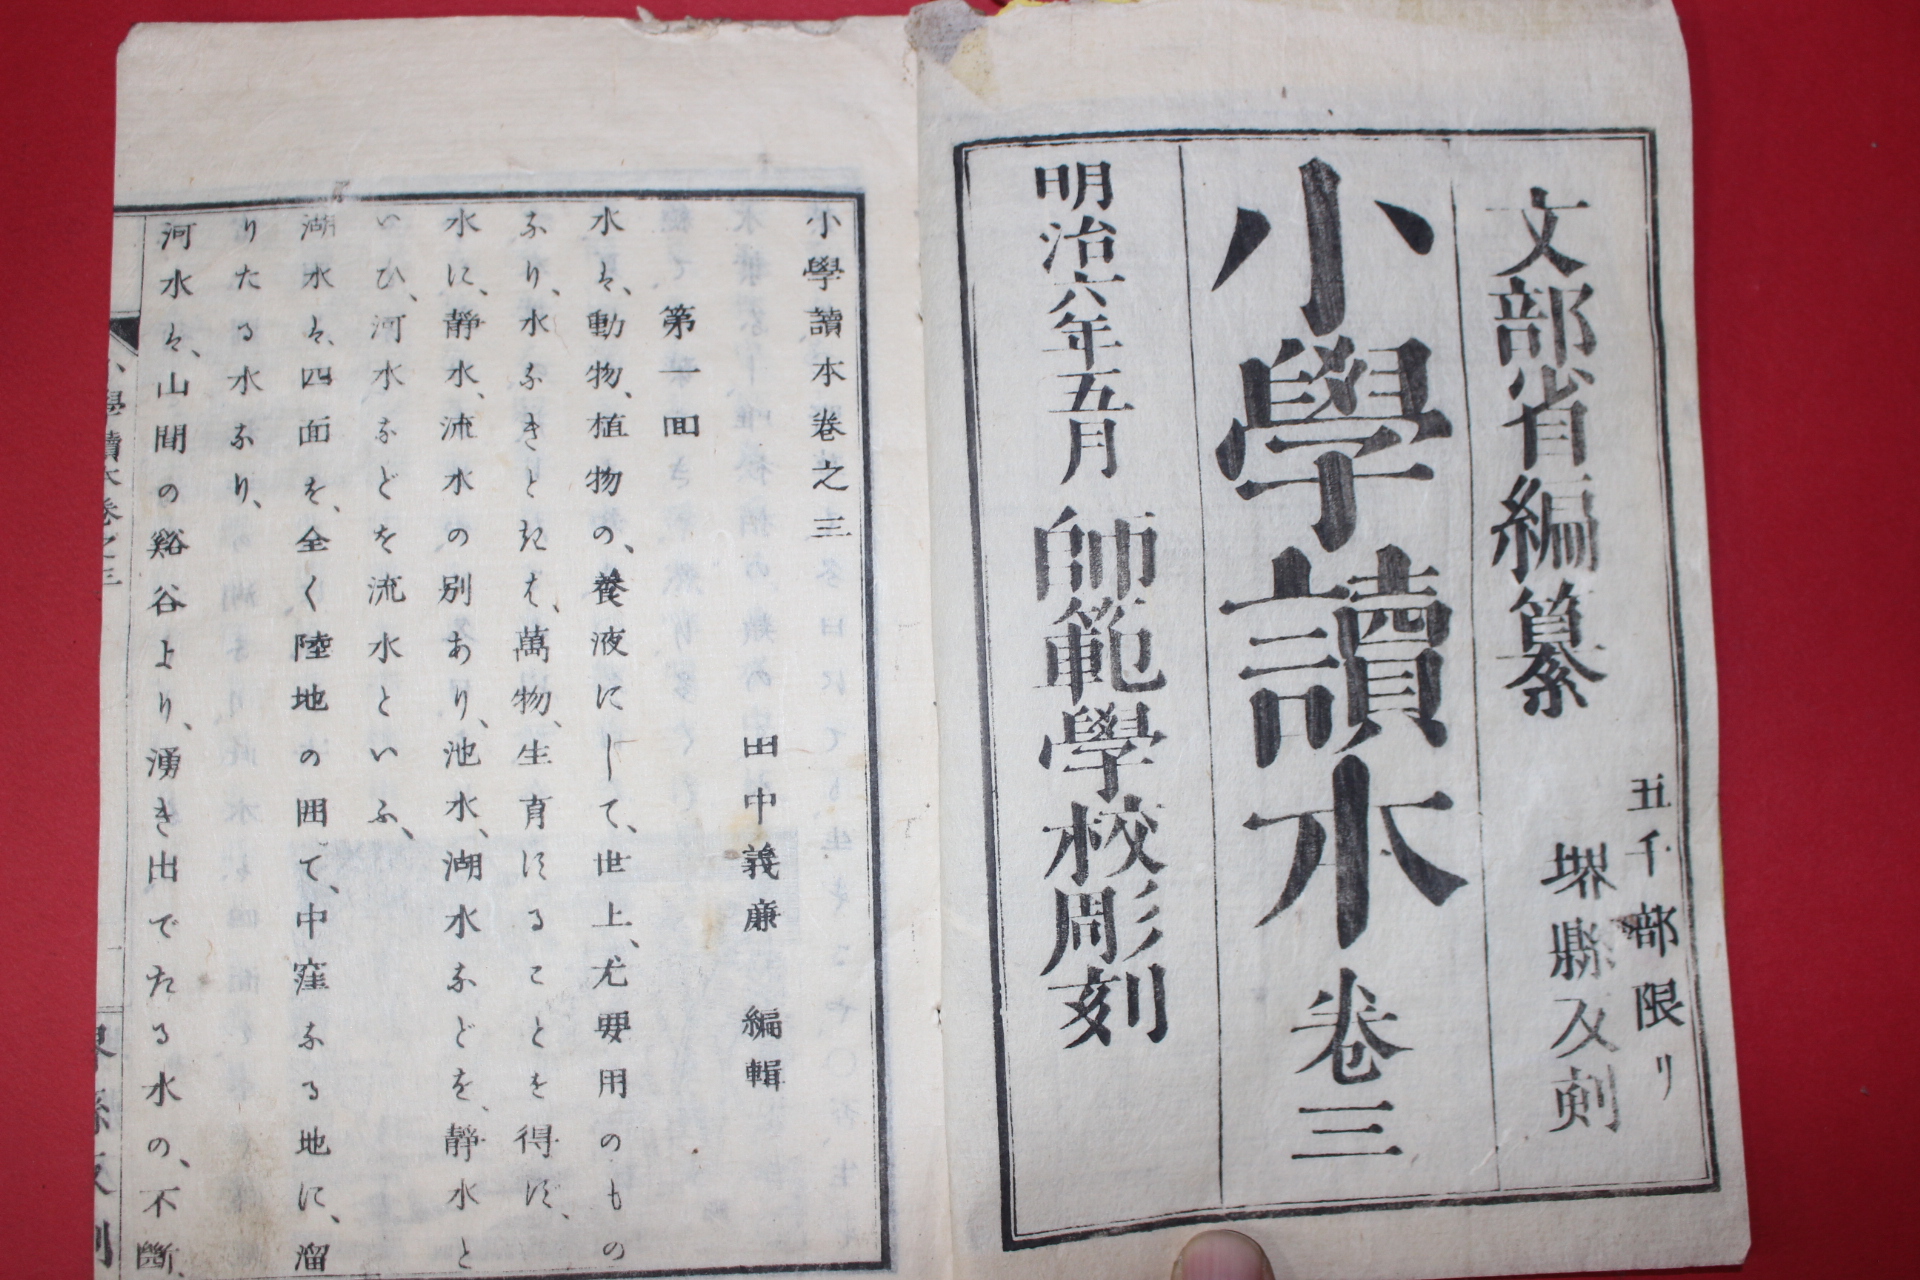 文部省編纂
五千部限リ
堺縣反刻
小學讀本 卷三
明治六年五月 師範學校彫刻
小學讀本卷之三
田中義廉 編輯
第一回
水ハ、動物、植物の、養液にして、世上、尤要用のもの
なり、水なきときハ、萬物、生育することを得ず、
水に、靜水、流水の別あり、池水、湖水などを、靜水と
いひ、河水などを流水といふ、
湖水ハ、四面を、全く陸地の囲て、中窪なる地に、溜
りたる水なり、
河水ハ、山間の谿谷より、湧き出でたる水の、不斷、
小學讀本卷之三
縣反刻